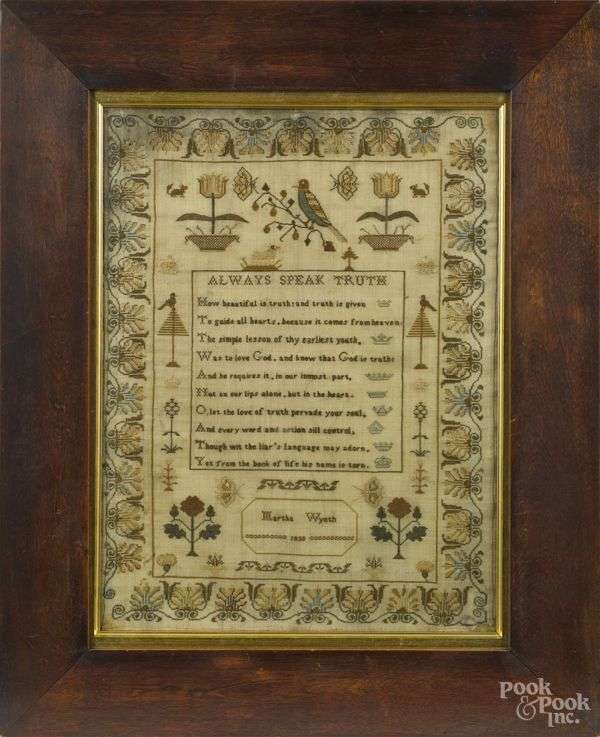 ALWAYS SPEAK TRUTH
How beautiful is truth: and truth is given
To guide all hearts, because it comes from heaven
The simple lesson of thy earliest youth,
Was to love God, and know that God is truth:
And he requires it, in our inmost part,
Not on our lips alone, but in the heart.
O, let the love of truth pervade your soul,
And every word and action sill control,
Though wit the liar's language may adorn,
Yet from the book of life his name is torn.
Martha Wyeth
Pook
& Pook
Inc.